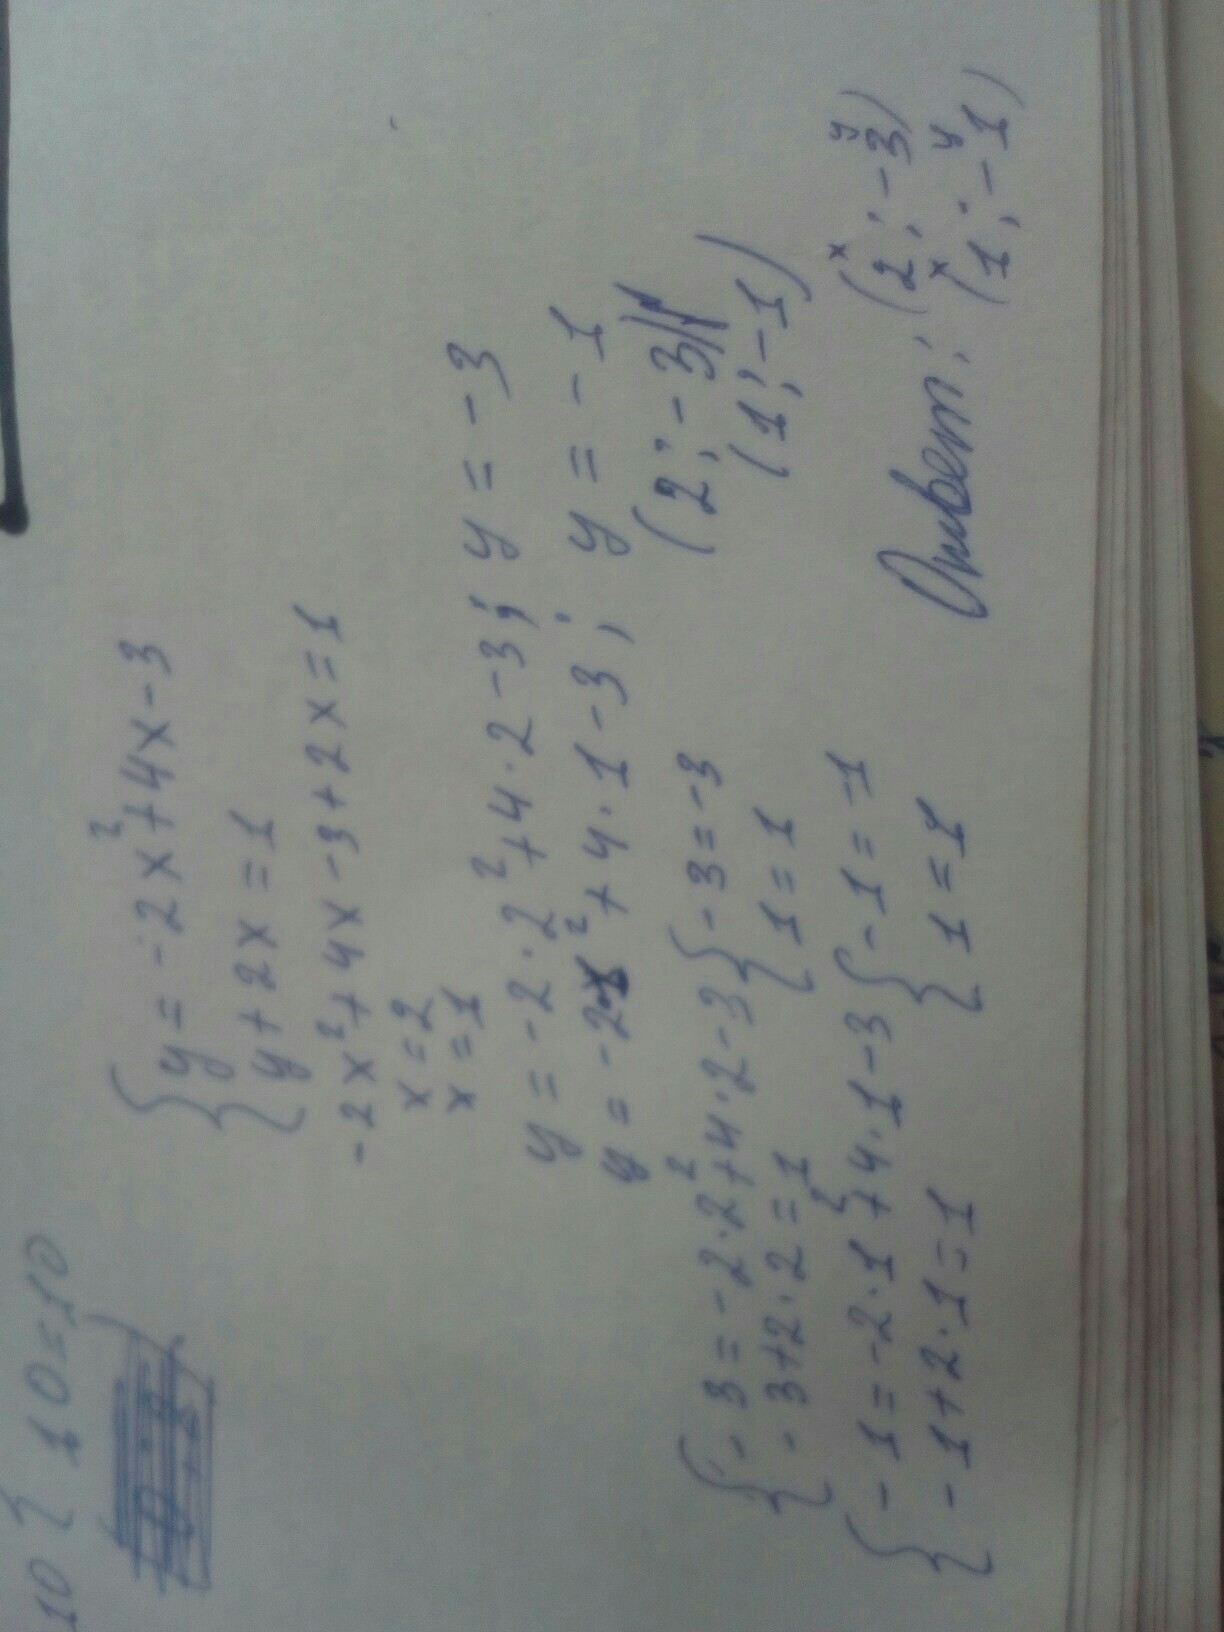 10 { 10=10
{ y = -2x²+4x-3
{ y + 2x = 1
-2x²+4x-3+2x=1
x=2
x=1
y = -2·2²+4·2-3; y = -3
y = -2·1²+4·1-3; y = -1
{ -3=-2·2²+4·2-3 { -3=-3 (2;-3)
{ -3+2·2=1 { 1=1 (1;-1)
{ -1=-2·1²+4·1-3 { -1=-1
{ -1+2·1=1 { 1=1
Ответ: (2;-3)
x y
(1;-1)
x y